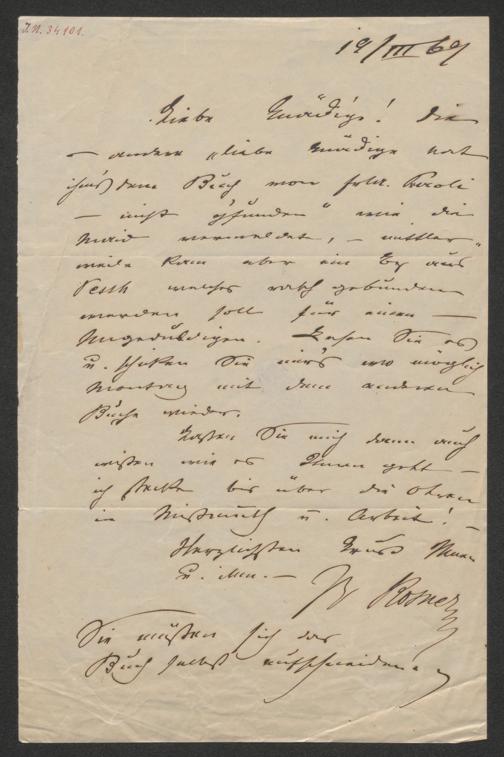 I.N. 34101.
19/III 69
Liebe Gnädige! Die
— andere "liebe Gnädige hat
ihns dem Buch von Frln. Paoli
— nicht gfunden" wie die
Maid vermeldet, — mittler-
weile kam aber ein Ex aus
Pesth welches rasch gebunden
werden soll für einen —
Ungeduldigen. Lesen Sie es
u. schicken Sie mir's wo möglich
Montag mit dem anderen
Buche wieder.
Lassen Sie mich dann auch
wissen wie es Ihnen geht —
ich stecke bis über die Ohren
in Missmuth u. Arbeit! —
Herzlichsten Gruss
u. —
Rosner
Sie müssen sich das
Buch selbst aufschneiden.